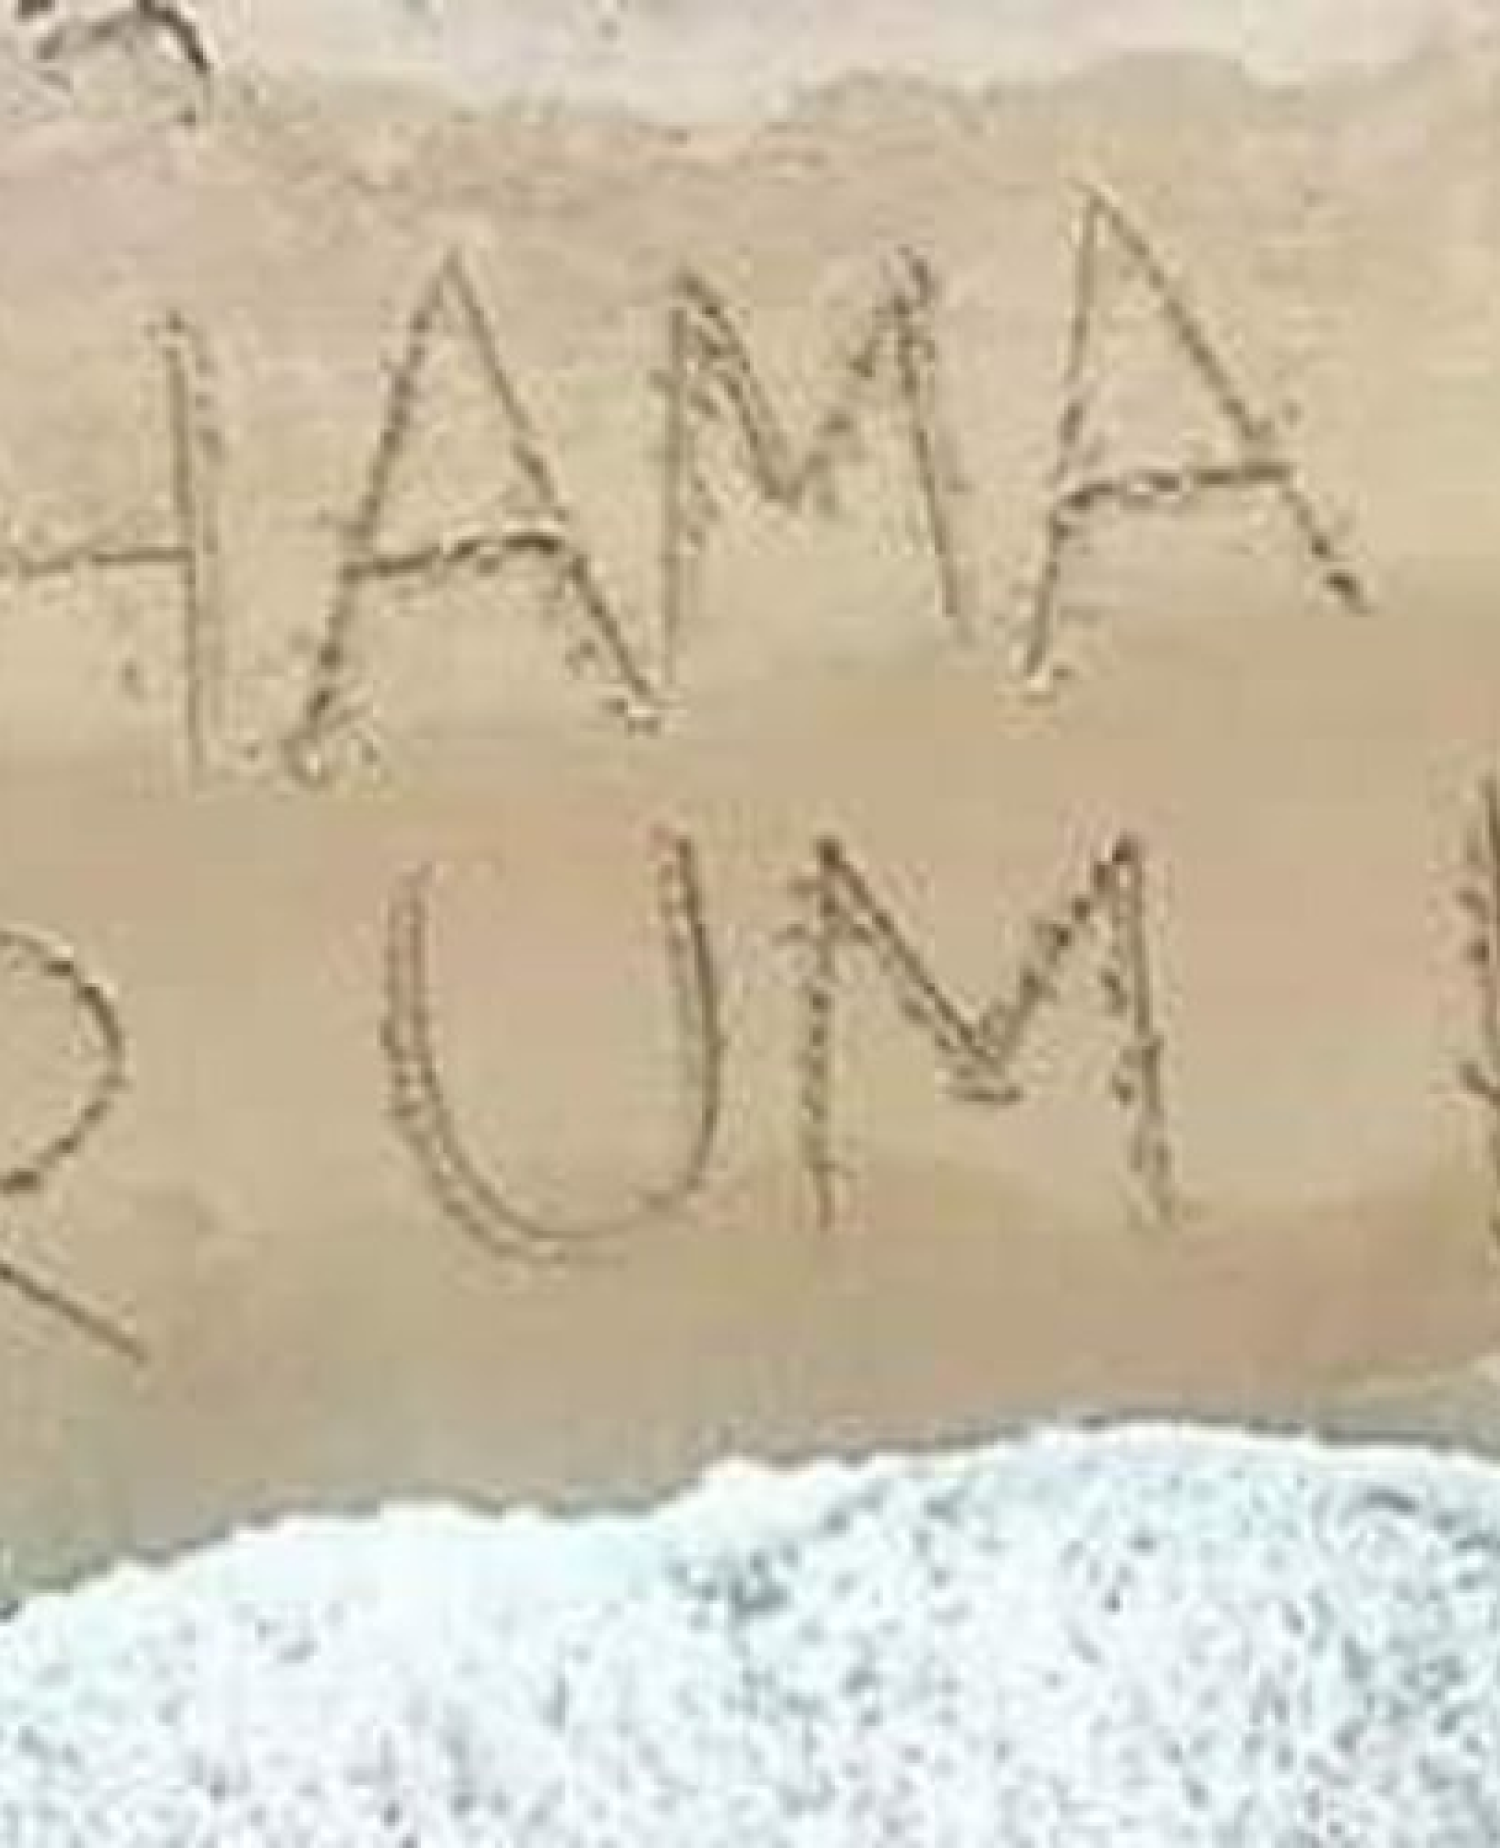 HAMA
RUM